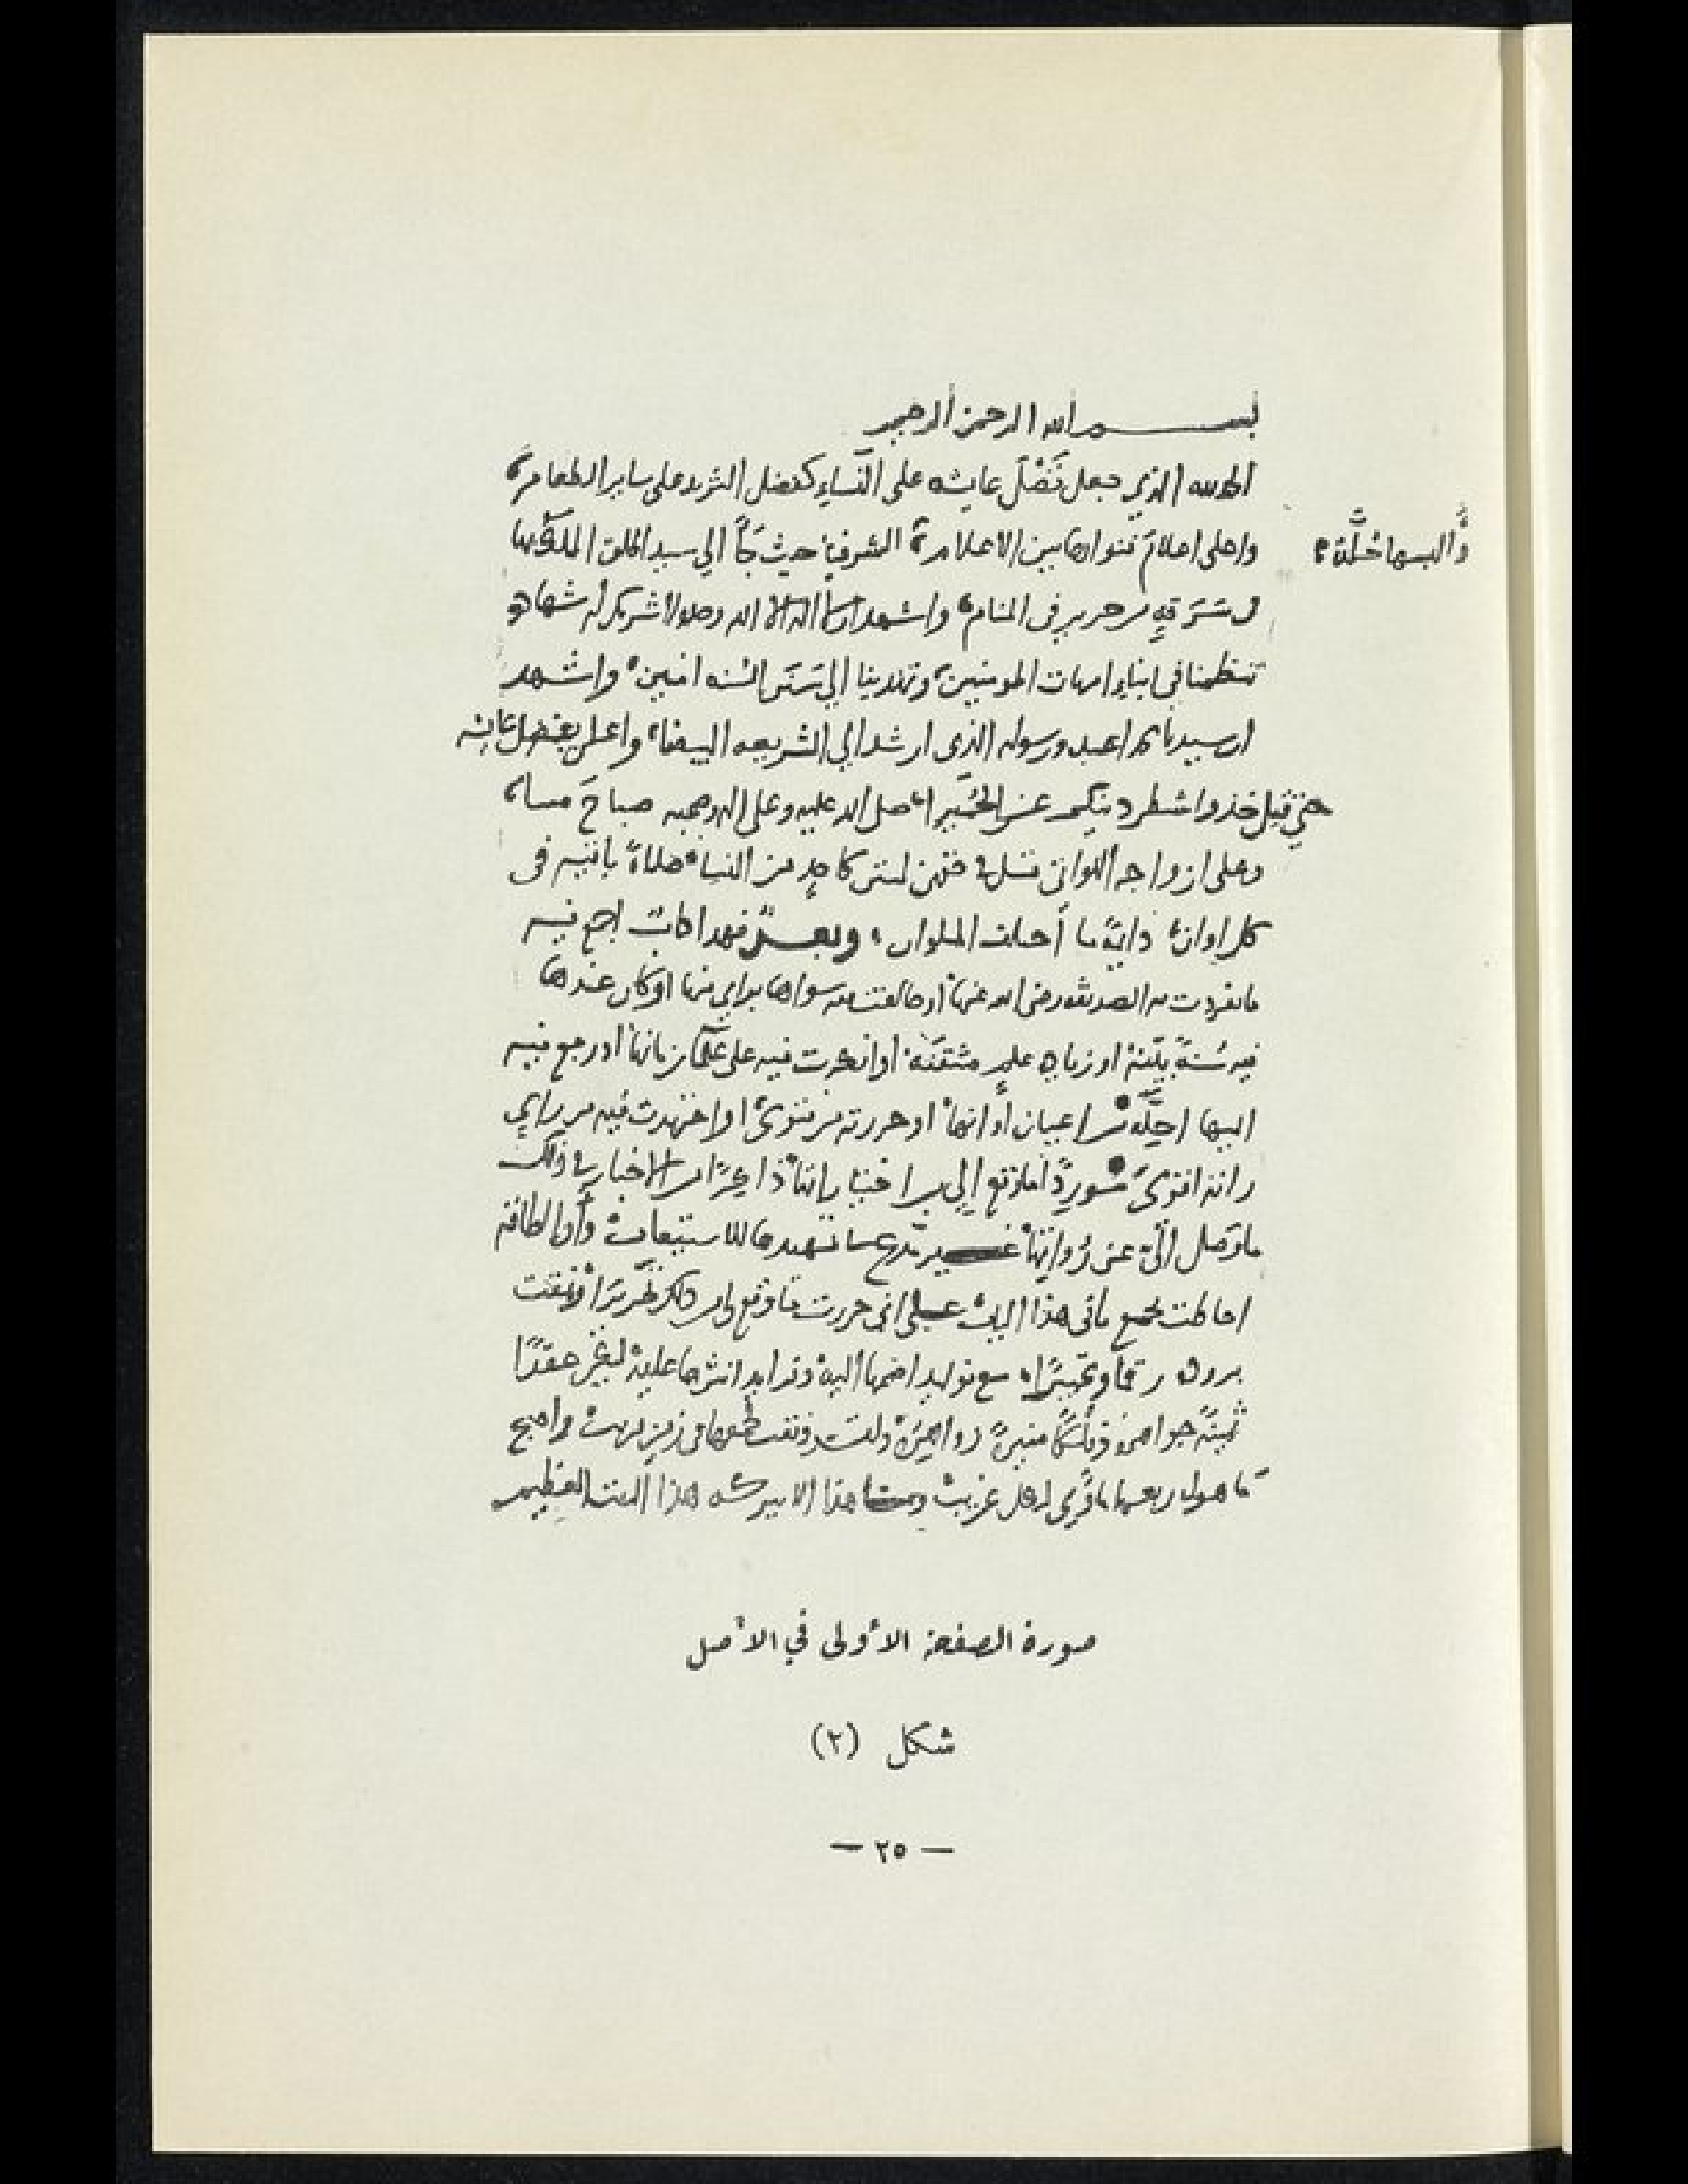 بسم الله الرحمن الرحيم
الحمد لله الذي جعل فَضْلَ عايشه على النّساءِ كفضل الثريد على ساير الطعام
واعلى اعلامَ فتواها بين الاعلام
وألبسها حُلَّة
الشرف حيث جَآ الي سيد الخلق الملك بها
في سَرَقةٍ من حرير في المنام واشهد ان لا اله الا الله وحده لا شريك له شهادة
تنظمنا في ابناءِ امهات المومنين وتهدينا الي سَنَن السنه امنين واشهد
ان سيدنا محمدا عبده ورسوله الذي ارشد الي الشريعه البيضا واعلن بفضل عايشه
حتي قيل خذوا شطر دينكم عن الحُمَيرا صلى الله عليه وعلى اله وصحبه صباحَ مساء
وعلى ازواجه اللواتي قيل في حقهن لستن كاحدٍ من النساء صلاةً باقيه في
كل اوان دايمةً ما أختلف الملوان وبعــد فهذا كتاب اجمع فيه
ما تفردت به الصديقه رضي الله عنها أو خالفت فيه سواها برايٍ منها او كان عندها
فيه سُنةً بيّنة او زيادة علمٍ متقنَة او انكرت فيه على علمآ زمانها او رجع فيه
اليها اجلّة من اعيان أوانها او حررته من فتوى او اجتهدت فيه من رايٍ
راته اقوى موردًا ما وقع إلي من اختياراتها ذاكرًا من الاخبار في ذلك
ما وَصل اليّ عن رُواتها غير مدع في تمهيدها للاستيعاب وأن الطاقه
احاطت بجميع ما في هذا الباب على اني حررت ما وقع لي من ذلك تحريرا ونمقت
بروده رقما وتحبيرًا مع فوايد اضمها اليه وفرايد انثرها عليه ليغدو عقدًا
ثمينةً جواهره وفلكًا منيرةً زواهره ولقد وقفت
ما هول ربعها ما ثوى لاهل غريب هذا الامير
صورة الصفحة الأولى في الأصل
شكل (٢)
— ٢٥ —